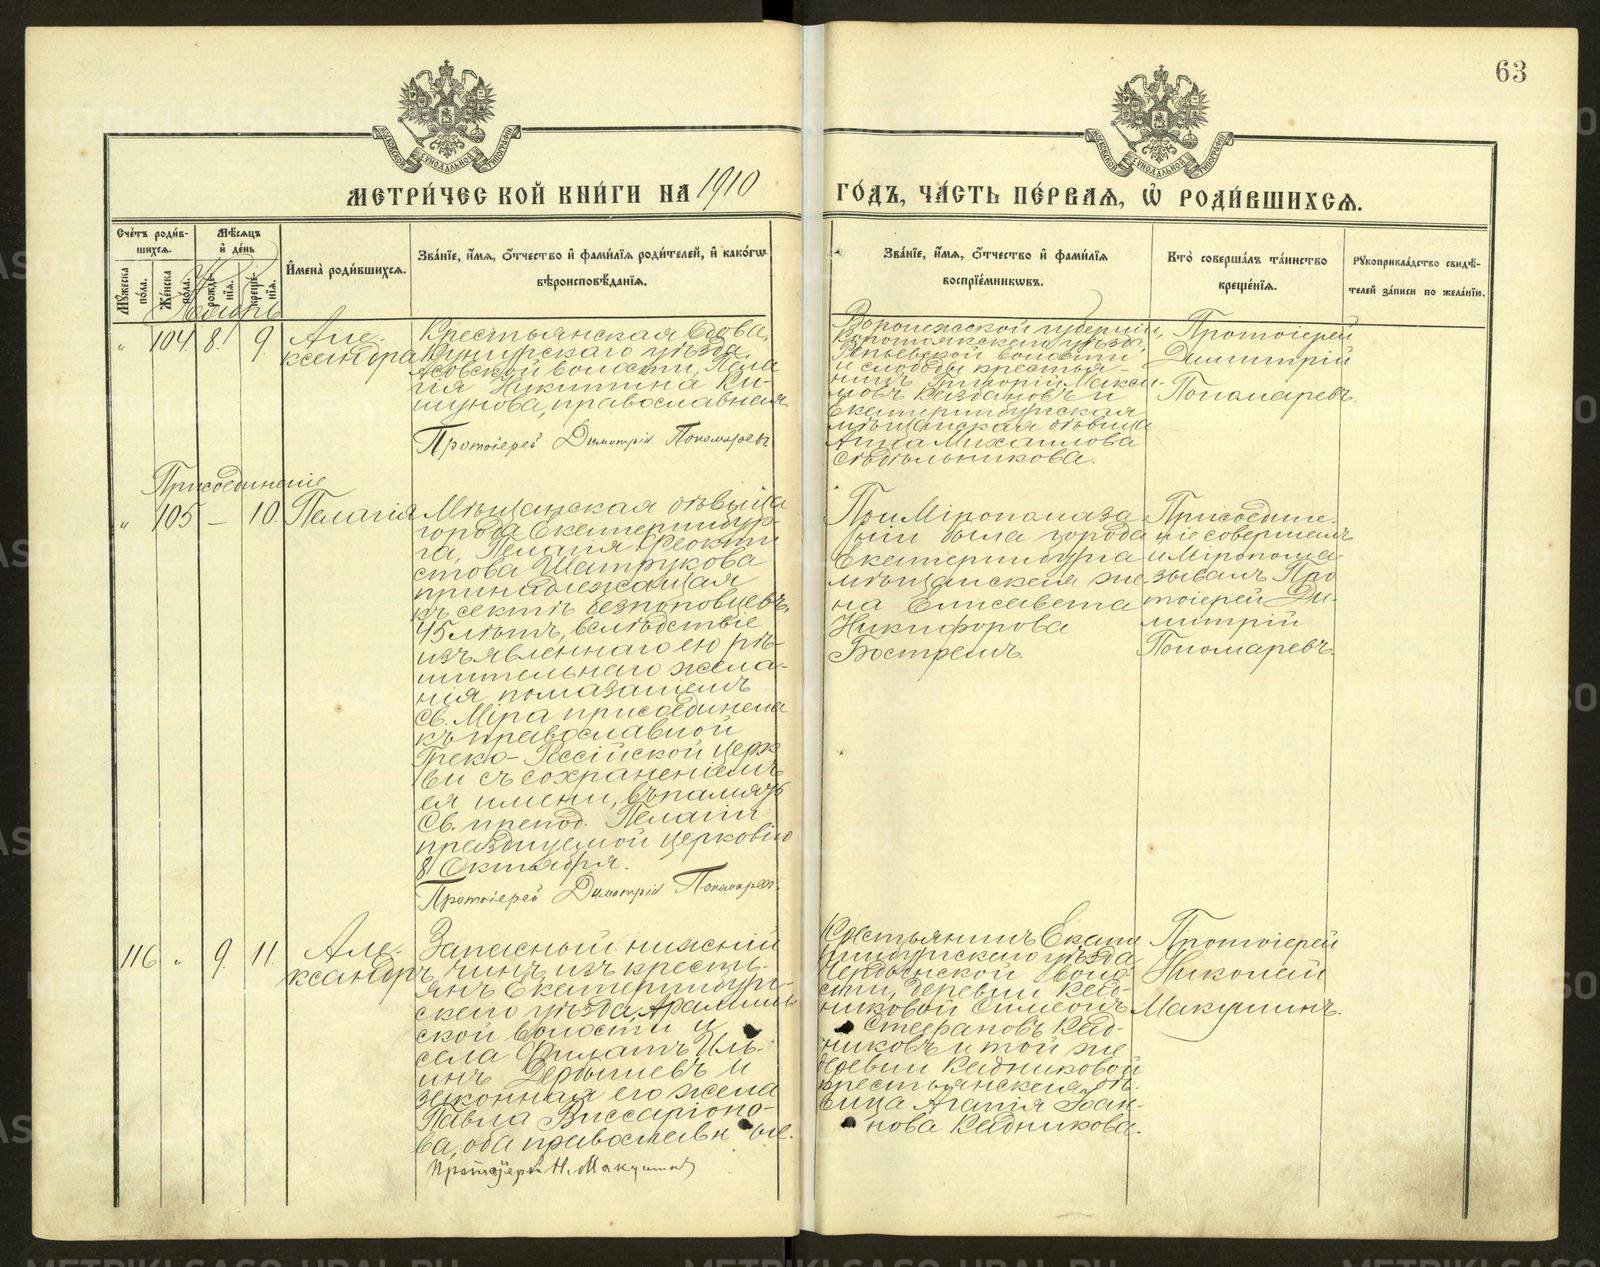 63
МОСКОВСКОЙ СѴНОДАЛЬНОЙ ТИПОГРАФІИ
МОСКОВСКОЙ СѴНОДАЛЬНОЙ ТИПОГРАФІИ
МЕТРИ́ЧЕС КОЙ КНИ́ГИ НА 1910
ГО́ДЪ, ЧА́СТЬ ПЕ́РВАѦ, Ѽ РОДИ́ВШИХСѦ.
Сче́тъ роди́в-
шихсѧ.
Мꙋ́жеска по́ла.
Же́нска по́ла.
Мѣ́сѧцъ
и҆ де́нь
рожде́-
нїѧ.
креще́-
нїѧ.
И҆мена̀ роди́вшихсѧ.
Зва́нїе, и҆́мѧ, ѻ҆́тчество и҆ фами́лїѧ роди́телей, и҆ како́гѡ
вѣроисповѣ́данїѧ.
Зва́нїе, и҆́мѧ, ѻ҆́тчество и҆ фами́лїѧ
воспрїе́мникѡвъ.
Кто̀ соверша́лъ та́инство
креще́нїѧ.
Рꙋкоприкла́дство свидѣ́-
телей за́писи по жела́нїю.
Ноябрь
" 104 8. 9.
Але-
ксандра
Крестьянская вдова,
Кунгурскаго уѣзда,
Асовской волости, Пела
гія Никитина Ки-
шунова, православная
Протоіерей Димитрій Пономаревъ
Воронежской губерніи,
Коротоякскаго уѣзда,
волости
и слободы крестья-
нинъ Григорій Макси-
мовъ и
Екатеринбургская
мѣщанская дѣвица
Анна Михаилова
Сѣдѣльникова.
Протоіерей
Димитрій
Пономаревъ.
Присоединеніе
" 105 — 10.
Пелагія
Мѣщанская дѣвица
города Екатеринбур-
га, Пелагія Ѳеокти
стова Шатрукова
принадлежащая
къ сектѣ безпоповцевъ,
45 лѣтъ, вслѣдствіе
изъявленнаго ею рѣ-
шительнаго жела-
нія помазаніемъ
Св. Міра присоединена
къ православной
Греко-Россійской церк
ви съ сохраненіемъ
ея имени, въ память
Св. препод. Пелагіи
празднуемой церковію
8 Октября.
Протоіерей Димитрій Пономаревъ.
При Міропомаза
ніи была города
Екатеринбурга
мѣщанская же
на Елисавета
Никифорова
Бостремъ.
Присоедине-
ніе совершалъ
и Міропома-
зывалъ Про
тоіерей Ди-
митрій
Пономаревъ.
116 " 9. 11.
Але-
ксандръ
Запасный нижній
чинъ изъ кресть-
янъ Екатеринбург-
скаго уѣзда, Арамиль
ской волости и
села Филатъ Иль-
инъ Дербышевъ и
законная его жена
Павла Виссаріоно-
ва, оба православные.
Протоіерей Н. Макушинъ
Крестьянинъ Екате
ринбургскаго уѣзда
воло-
сти, деревни Кад-
никовой Симеонъ
Стефановъ Кад-
никовъ и той же
деревни Кадниковой
крестьянская дѣ-
вица Агапія Іоан-
нова Кадникова.
Протоіерей
Николай
Макушинъ.